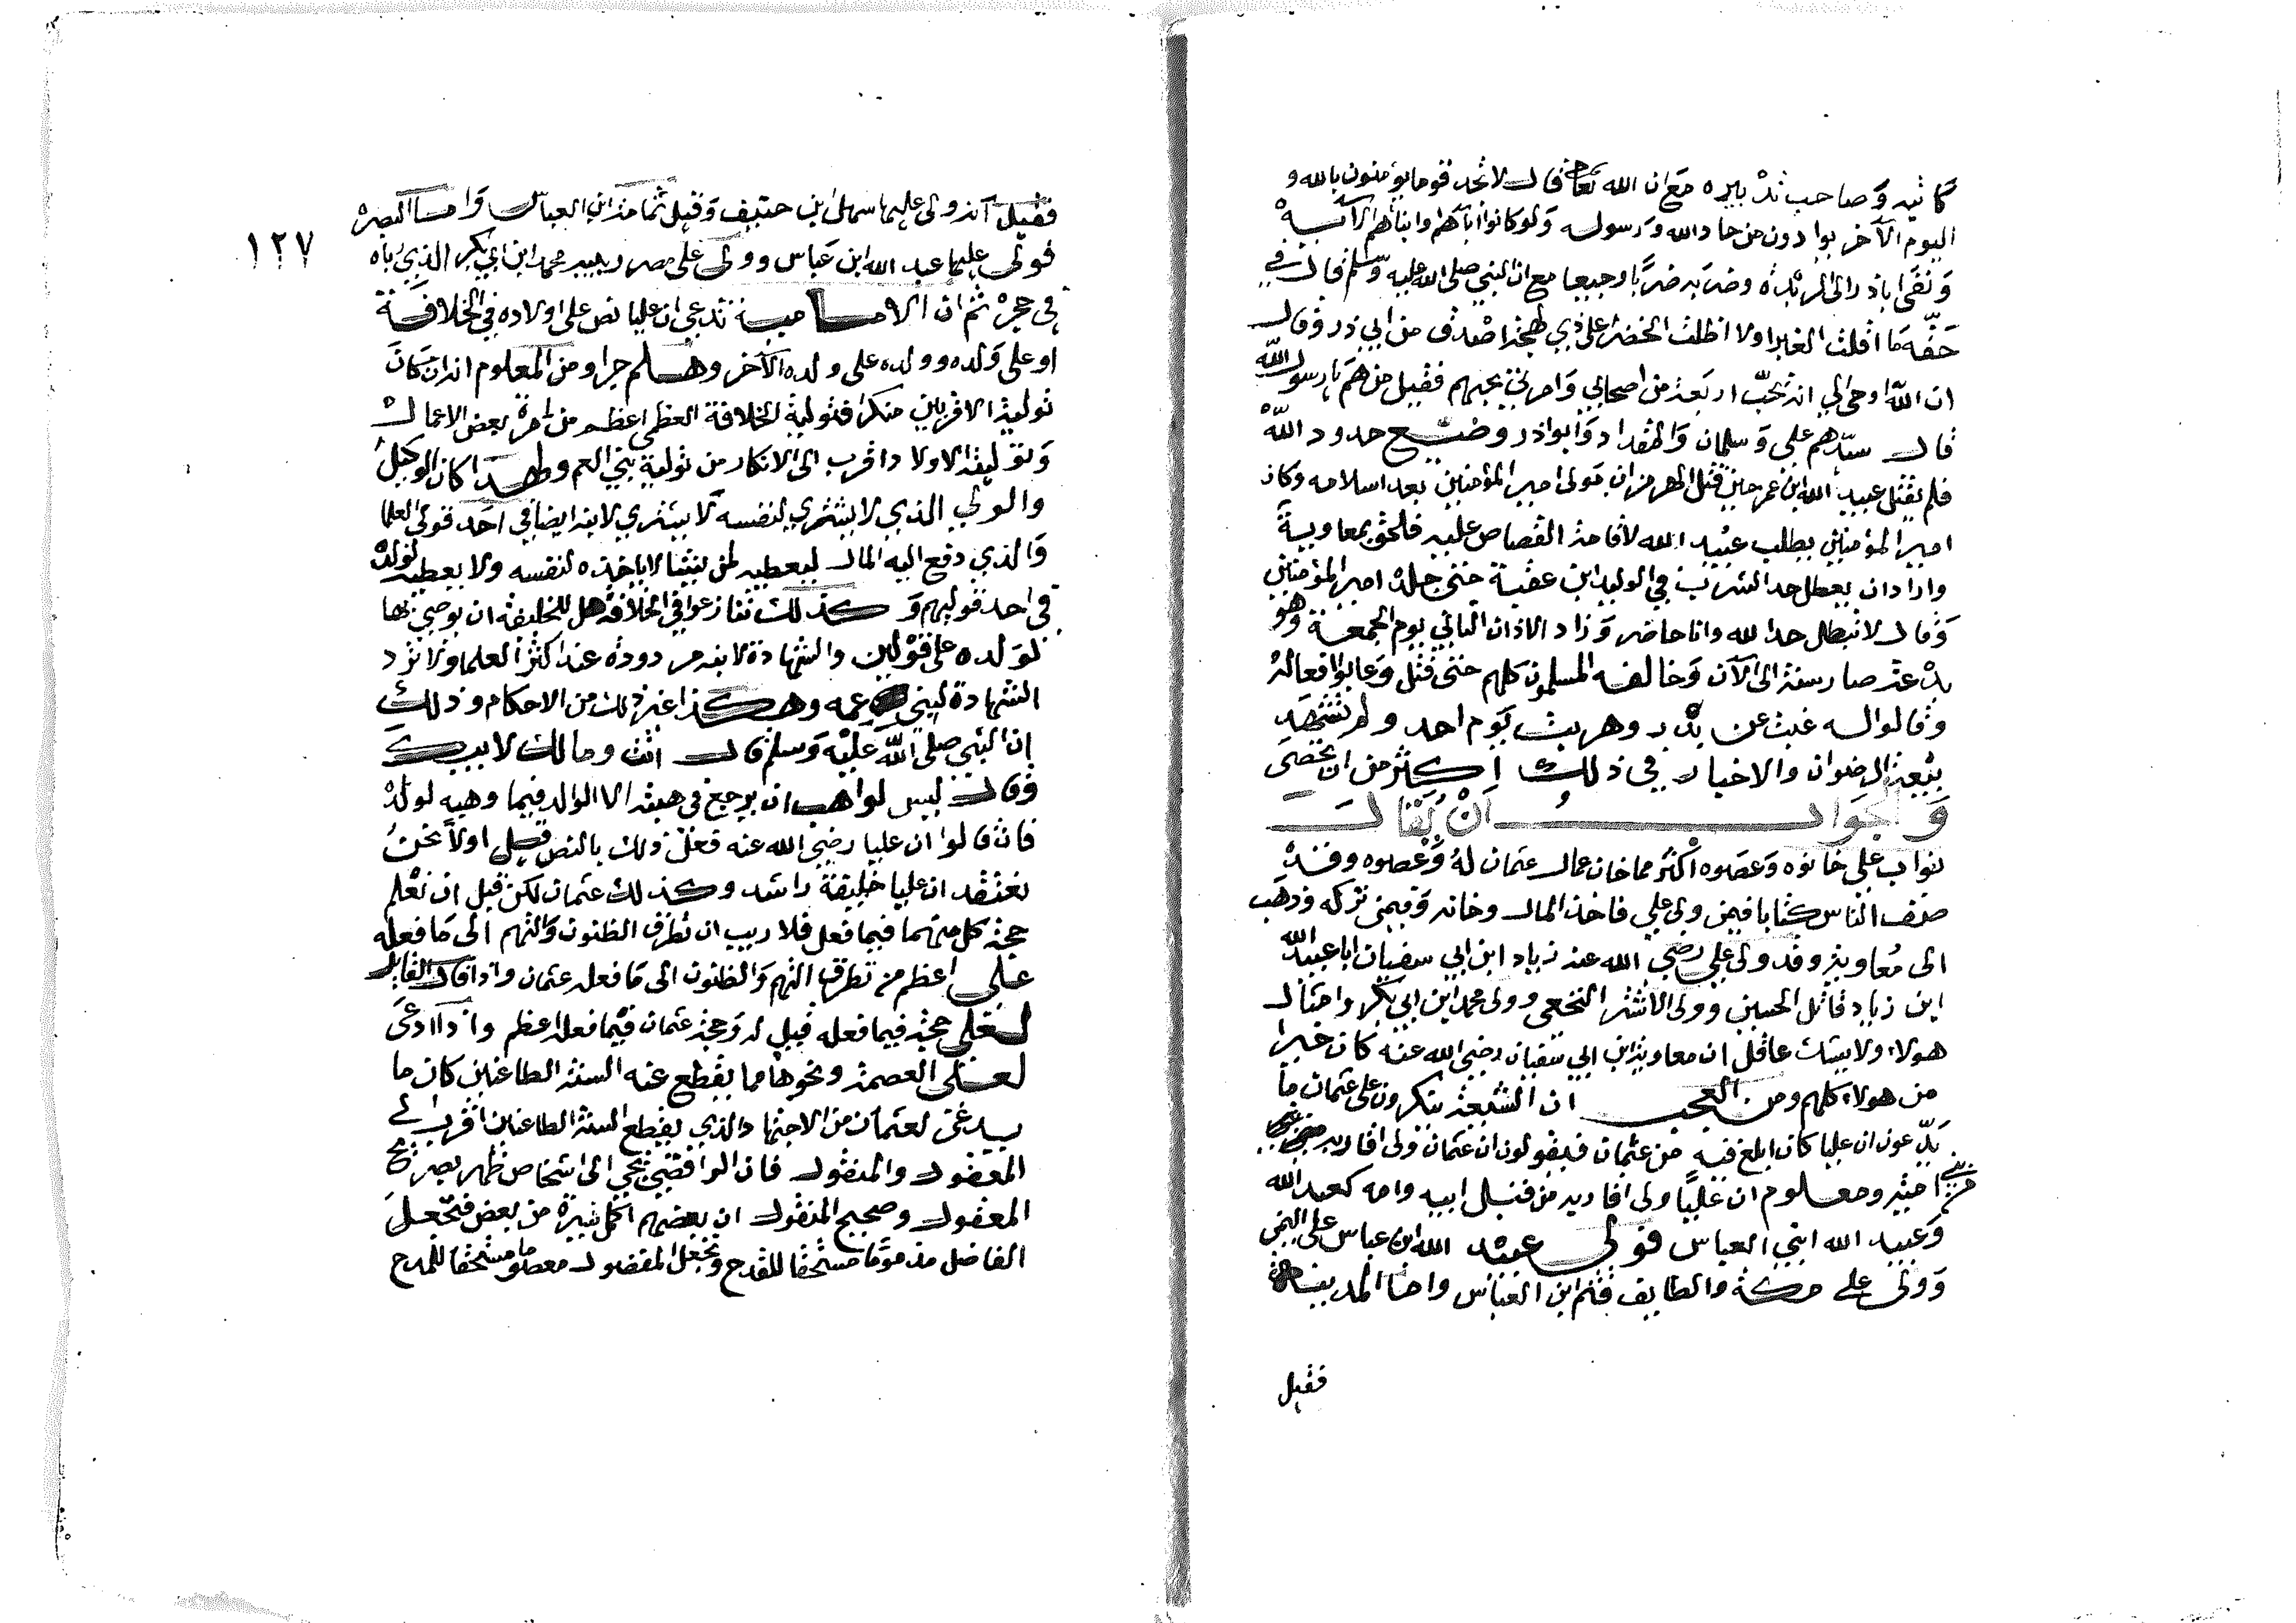 كاتبه وصاحب تدبيره مع ان الله تعالى قال لا تجد قوما يؤمنون بالله و
اليوم الآخر يوادون من حاد الله ورسوله ولو كانوا آباءهم وابناءهم الآية
ونفى اباذر الى الربذة وضربه ضربا وجيعا مع ان النبي صلى الله عليه وسلم قال في
حقه ما اقلت الغبرا ولا اظلت الخضرا على ذي لهجة اصدق من ابي ذر وقال
ان الله اوحى الي انه يحب اربعة من اصحابي وامرني بحبهم فقيل من هم يا رسول الله
قال سيدهم علي وسلمان والمقداد وابواذر وضيع حدود الله
فلم يقتل عبيد الله ابن عمر حين قتل الهرمزان مولى امير المؤمنين بعد اسلامه وكان
امير المؤمنين يطلب عبيد الله لاقامة القصاص عليه فلحق بمعاوية
وارادان يعطل حد الشرب في الوليد ابن عقبة حتى جلده امير المؤمنين
وقال لا تبطل حد الله وانا حاضر وزاد الاذان الثاني يوم الجمعة وهو
بدعة صار سنة الى الآن وخالفه المسلمون كلهم حتى قتل وعابوا فعاله
وقالوا له غبت عن بدر وهربت يوم احد ولم تشهد
بيعة الرضوان والاخبار في ذلك اكثر من ان تحصى
والجواب ان يقال
نواب علي خانوه وعصوه اكثر مما خان عمال عثمان له وعصوه وقد
صنف الناس كتابا فيمن ولى علي فاخذ المال وخانه وفيمن تركه وذهب
الى معاوية وقد ولى علي رضي الله عنه زياد ابن ابي سفيان ابا عبيد الله
ابن زياد قاتل الحسين وولى الاشتر النخعي وولى محمد ابن ابي بكر وامثال
هولاء ولا يشك عاقل ان معاوية ابن ابي سفيان رضي الله عنه كان خيرا
من هولاء كلهم ومن العجب ان الشيعة ينكرون على عثمان ما
يدعون ان عليا كان ابلغ فيه من عثمان فيقولون ان عثمان ولى اقاربه من
بني امية ومعلوم ان عليا ولى اقاربه من قبل ابيه وامه كعبد الله
وعبيد الله ابني العباس فولى عبيد الله ابن عباس على اليمن
وولى على مكة والطايف قثم ابن العباس واما المدينة
فقيل
١٢٧
فقيل انه ولى عليها سهل ابن حنيف وقيل ثمامة ابن العباس واما البصرة
فولى عليها عبد الله ابن عباس وولى على مصر ربيبه محمد ابن ابي بكر الذي رباه
في حجره ثم ان الامامية تدعي ان عليا نص على اولاده في الخلافة
او على ولده وولده على ولده الآخر وهلم جرا ومن المعلوم انه ان كان
تولية الاقربين منكرا فتولية الخلافة العظمى اعظم من امرة بعض الاعمال
وتولية الاولاد اقرب الى الانكار من تولية بني العم ولهذا كان الوكيل
والولي الذي لا يشتري لنفسه لا يشتري لابنه ايضا في احد قولي العلما
والذي دفع اليه المال ليعطيه لمن يشا لا ياخذه لنفسه ولا يعطيه لولده
في احد قوليهم وكذلك تنازعوا في الخلافة هل للخليفة ان يوصي بها
لولده على قولين والشهادة لابنه مردودة عند اكثر العلما ولا ترد
الشهادة لبني عمه وهكذا غير ذلك من الاحكام وذلك
ان النبي صلى الله عليه وسلم قال انت ومالك لابيك
وقال ليس لواهب ان يرجع في هبته الا الوالد فيما وهبه لولده
فان قالوا ان عليا رضي الله عنه فعل ذلك بالنص قيل اولا نحن
نعتقد ان عليا خليفة راشد وكذلك عثمان لكن قبل ان نعلم
حجة كل منهما فيما فعل فلا ريب ان تطرق الظنون والتهم الى ما فعله
علي اعظم من تطرق التهم والظنون الى ما فعله عثمان واذا قال القايل
لعلي حجة فيما فعله قيل له وحجة عثمان فيما فعله اعظم واذا ادعى
لعلي العصمة ونحوها مما يقطع عنه السنة الطاعنين كان ما
يدعى لعثمان من الاجتهاد الذي يقطع السنة الطاعنين اقرب الى
المعقول والمنقول فان الرافضي يجي الى اشخاص ظهر بصريح
المعقول وصحيح المنقول ان بعضهم اكمل سيرة من بعض فيجعل
الفاضل مذموما مستحقا للقدح ويجعل المفضول معصوما مستحقا للمدح